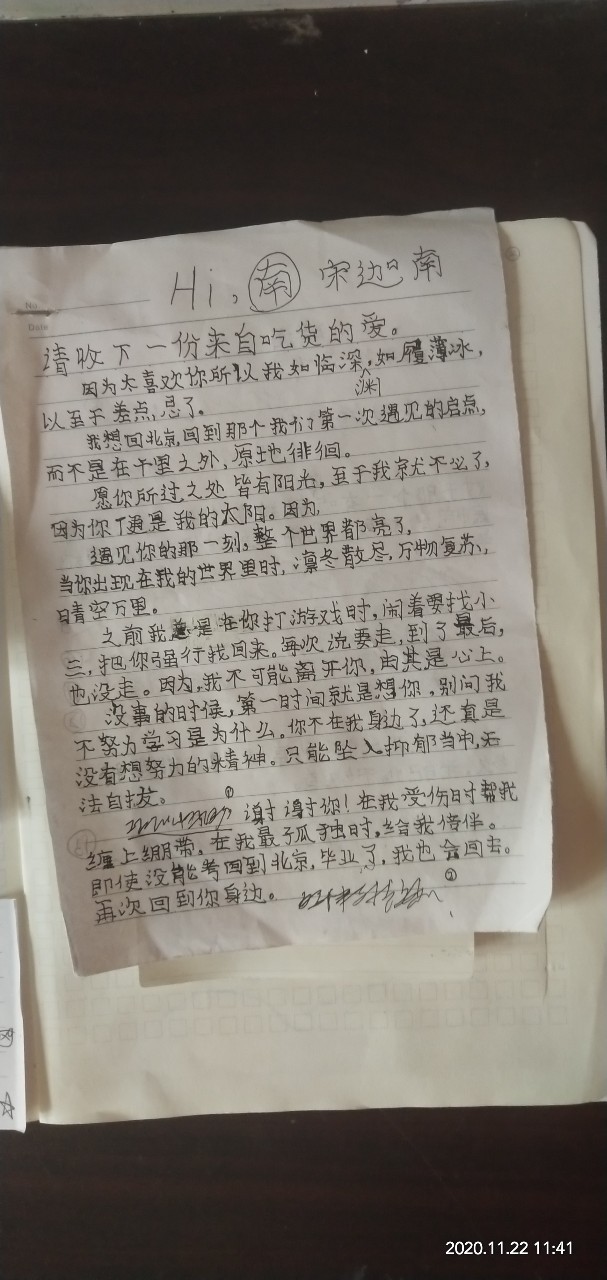 Hi，南 宋迦南
No.
Date
请收下一份来自吃货的爱。
因为太喜欢你所以我如临深渊，如履薄冰，
以至于差点，忘了。
我想回北京，回到那个我们第一次遇见的启点，
而不是在千里之外，原地徘徊。
愿你所过之处皆有阳光，至于我就不必了，
因为你便是我的太阳。因为，
遇见你的那一刻，整个世界都亮了，
当你出现在我的世界里时，凛冬散尽，万物复苏，
晴空万里。
之前我总是在你打游戏时，闹着要找小
三，把你强行找回来。每次说要走，到了最后，
也没走。因为，我不可能离开你，由其是心上。
没事的时候，第一时间就是想你，别问我
不努力学习是为什么。你不在我身边了，还真是
没有想努力的精神。只能坠入抑郁当中，无
法自拔。
① 谢谢你！在我受伤时帮我
缠上绷带，在我最孤独时，给我倍伴。
即使没能考回到北京，毕业了，我也会回去。
再次回到你身边。 ②
2020.11.22 11:41